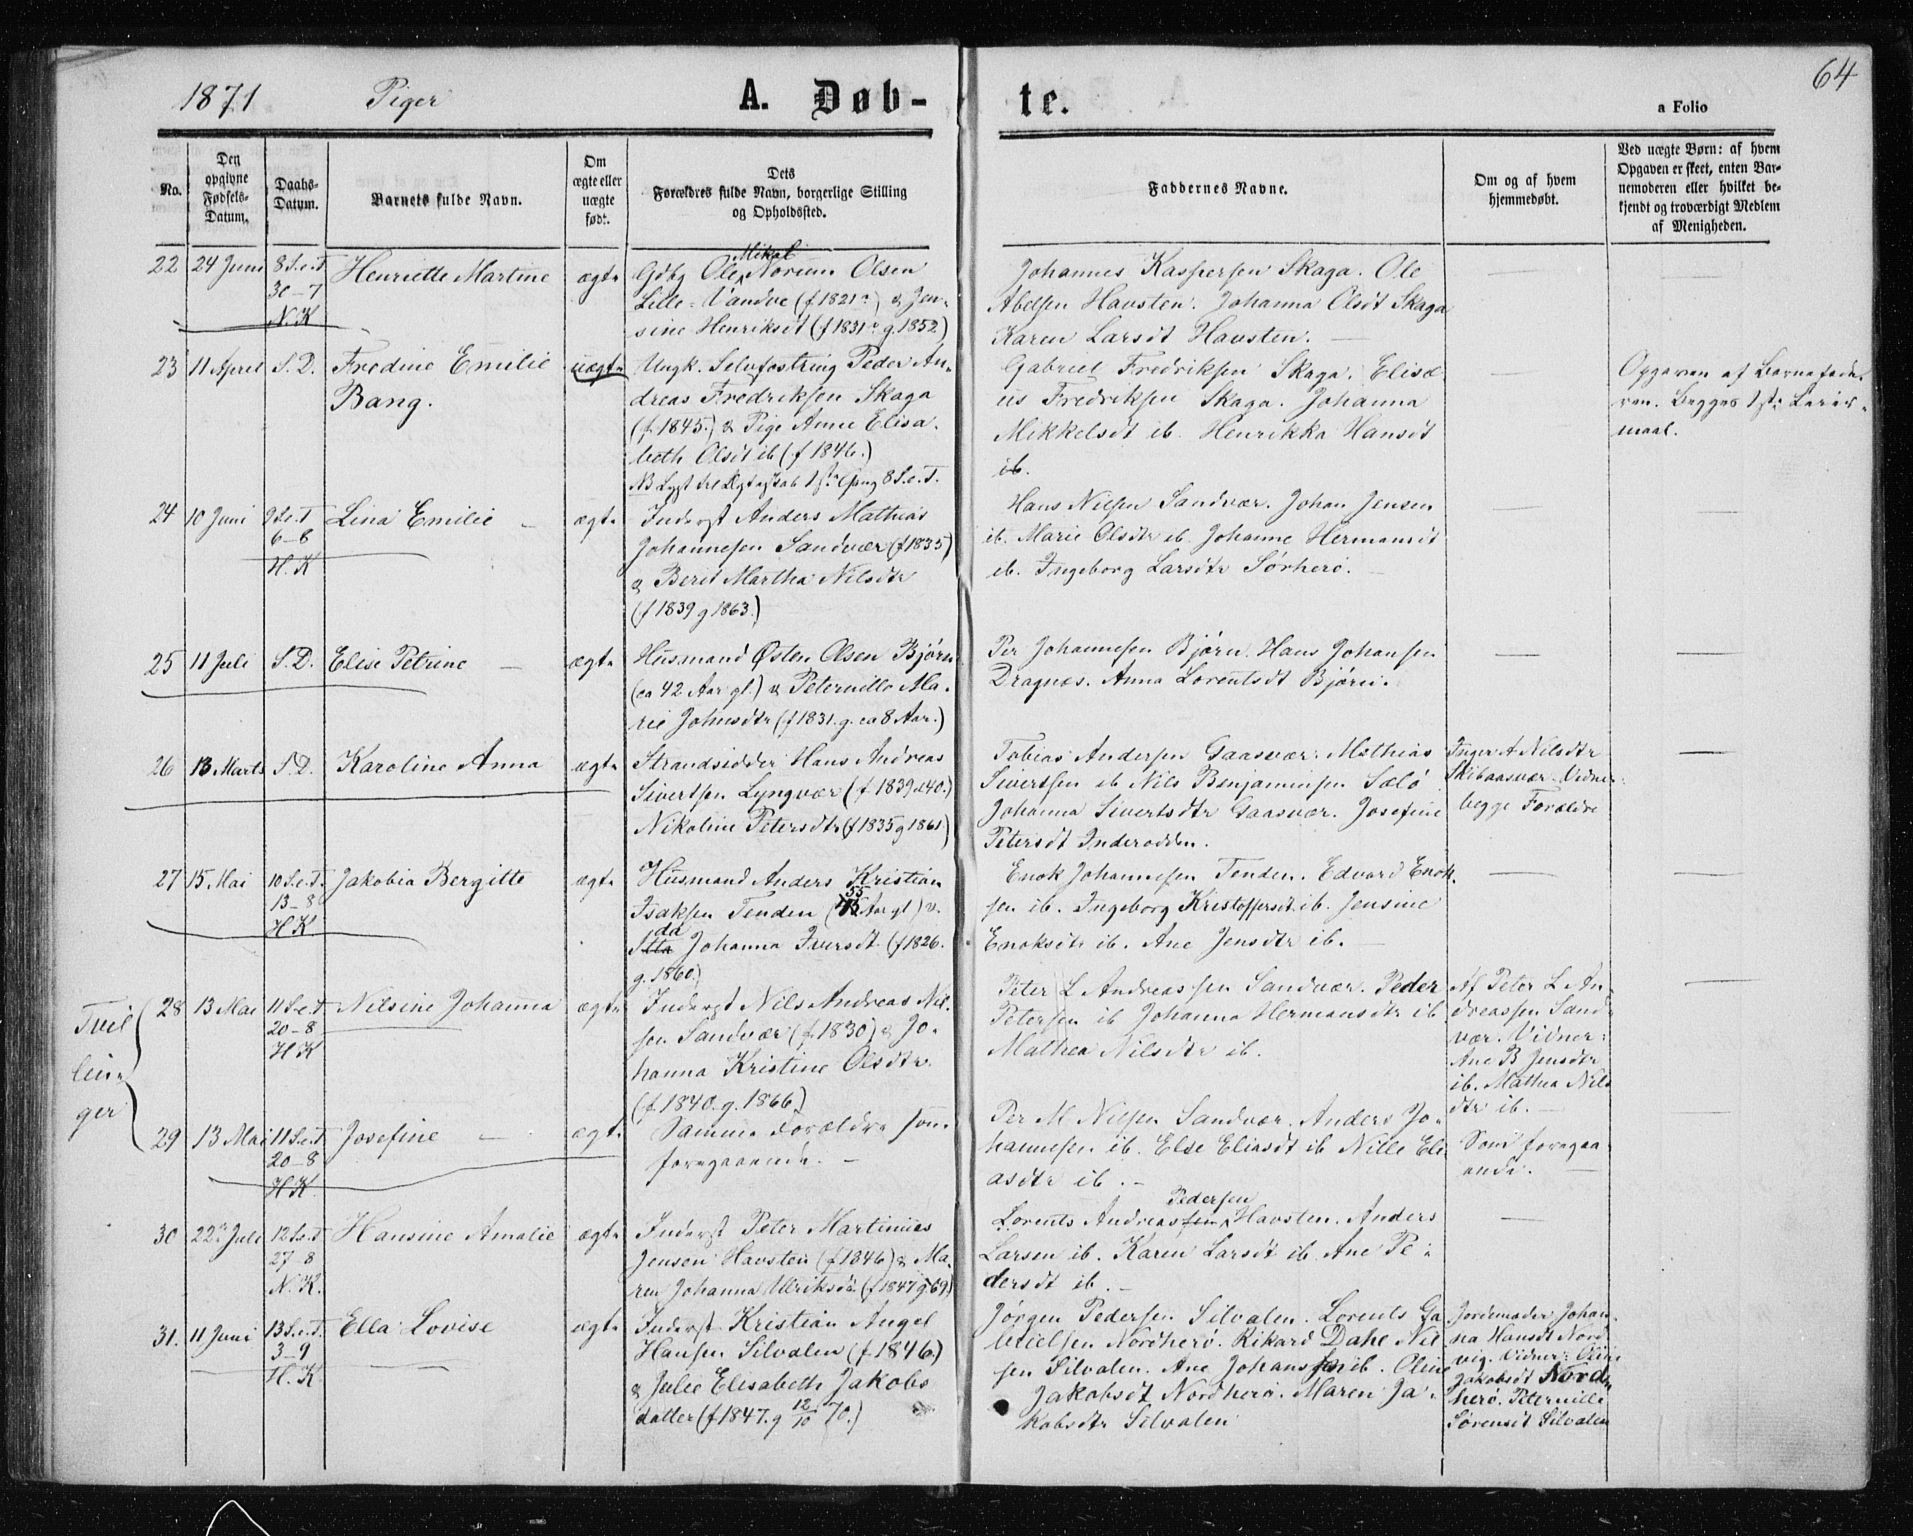 1871 Piger A. Døb- te. 64
a Folio
No.
Den opgivne Fødsels-Datum.
Daabs-Datum.
Barnets fulde Navn.
Om ægte eller uægte født.
Dets Forældres fulde Navn, borgerlige Stilling og Opholdssted.
Faddernes Navne.
Om og af hvem hjemmedøbt.
Ved uægte Børn: af hvem Opgaven er skeet, enten Barnemoderen eller hvilket bekjendt og troværdigt Medlem af Menigheden.
22 24 Juni 8 S.e.T. 30-7 N.K Henriette Martine ægte
Gdbg Ole Mikal Norum Olsen
Lille-Vandve (f 1821) & Jen-
sine Henriksdt (f 1831 g. 1852)
Johannes Kaspersen Skaga. Ole
Abelsen Havsten. Johanna Olsdt Skaga
Karen Larsdt Havsten. —
23 11 April S.D. Fredine Emilie
Bang.
uægte
Ungk. Selvfostring Peder An-
dreas Fredriksen Skaga
(f 1845.) & Pige Anne Elisa-
beth Olsdt ib (f 1846.)
NB Lyst til Ægteskab 1ste Gang 8 S.e.T.
Gabriel Fredriksen Skaga. Elisæ-
us Fredriksen Skaga. Johanna
Mikkelsdt ib. Henrikka Hansdt
ib.
Opgaven af Barnefade-
ren. Begges 1ste Leier-
maal.
24 10 Juni 9 S.e.T 6-8 H.K Lina Emilie — ægte
Inderst Anders Mathias
Johannesen Sandvær (f 1835)
& Berit Martha Nilsdtr
(f 1839 g 1863.)
Hans Nilsen Sandvær. Johan Jensen
ib. Marie Olsdtr ib. Johanne Hermansdt
ib. Ingeborg Larsdtr Sørherø. —
25 11 Juli S.D. Elise Petrine — ægte
Husmand Østen Olsen Bjørn
(ca 42 Aar gl.) & Peternille Ma-
rie Johnsdtr (f 1831. g. ca 8 Aar.)
Per Johannesen Bjørn. Hans Johansen
Dragnæs. Anna Lorentsdt Bjørn.
26 13 Marts S.D. Karoline Anna ægte
Strandsidder Hans Andreas
Sivertsen Lyngvær (f 1839 & 40.)
Nikoline Petersdtr (f 1835 g 1861)
Tobias Andersen Gaasvær. Mathias
Sivertsen ib Nils Benjaminsen Sælø
Johanna Sivertsdtr Gaasvær. Josefine
Petersdt Inderodden.
Inger A Nilsdtr
Skibaasvær. Vidne:
begge Forældre
27 15 Mai 10 S.e.T. 13-8 H.K Jakobia Bergitte ægte
Husmand Anders Kristian
Isaksen Tenden (55 Aar gl) &
Ida Johanna Iversdt (f 1826.
g. 1860.)
Enok Johannesen Tenden. Edvard Enok-
sen ib. Ingeborg Kristoffersdt. ib. Jensine
Enoksdtr ib. Ane Jensdtr ib. —
Tvil
lin-
ger
28 13 Mai 11 S.e.T 20-8 H.K Nilsine Johanna ægte
Inderst Nils Andreas Nil-
sen Sandvær (f. 1830) & Jo-
hanna Kristine Olsdtr.
(f. 1840. g. 1866.)
Peter L Andreassen Sandvær. Peder
Petersen ib Johanna Hermansdtr ib
Mathea Nilsdtr ib.
Af Peter L An-
dreassen Sand-
vær. Vidner:
Ane B Jensdtr
ib. Mathea Nils
dtr ib. —
29 13 Mai 11 S.e.T. 20-8 H.K. Josefine — ægte
Samme Forældre som
foregaaende. —
Per M. Nilsen Sandvær. Anders Jo-
hannesen ib. Else Eliasdt ib Nille Eli-
asdtr ib. —
Som foregaa-
ende. —
30 22de Juli 12 S.e.T 27-8 N.K. Hansine Amalie ægte
Inderst Peter Martinius
Jensen Havsten (f 1846) & Ma-
ren Johanna Ulriksdt (f 1847 g 69)
Lorents Andreas Pedersen Havsten. Anders
Larsen ib. Karen Larsdt ib. Ane Pe-
dersdt ib. —
31. 11 Juni 13 S.e.T. 3-9 H.K Ella Lovise ægte
Inderst Kristian Angel
Hansen Silvalen (f 1846.)
& Julie Elisabeth Jakobs
datter (f 1847. g 12/10 70.)
Jørgen Pedersen Silvalen. Lorents Ga-
brielsen Nordherø. Rikard Dahl Nil-
sen Silvalen. Ane Johansen ib. Oline
Jakobsdt Nordherø. Maren Ja-
kobsdtr Silvalen
Jordemoder Johan-
na Hansdt Nord-
vig. Vidner: Oline
Jakobsdt Nord-
herø. Peternille
Sørensdt Silvalen